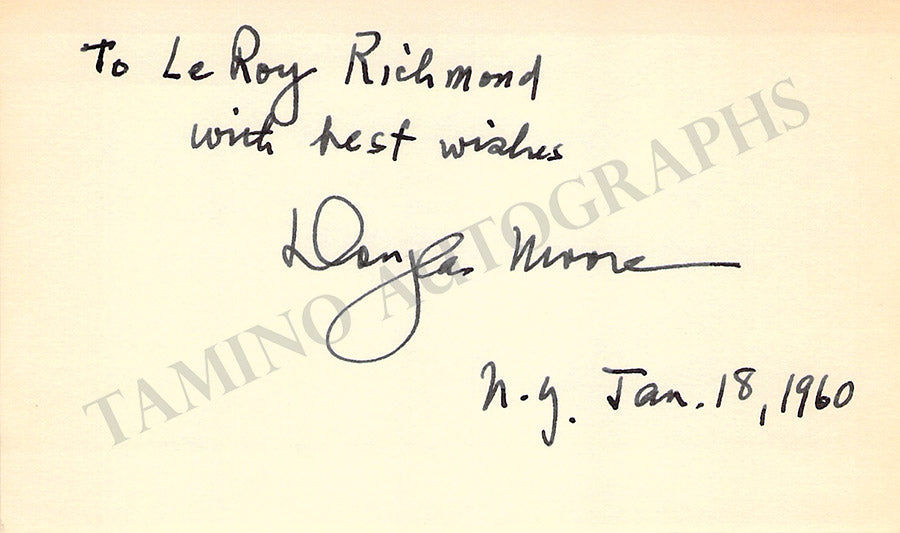 To LeRoy Richmond
with best wishes
Douglas Moore
N.Y. Jan. 18, 1960
TAMINO AUTOGRAPHS